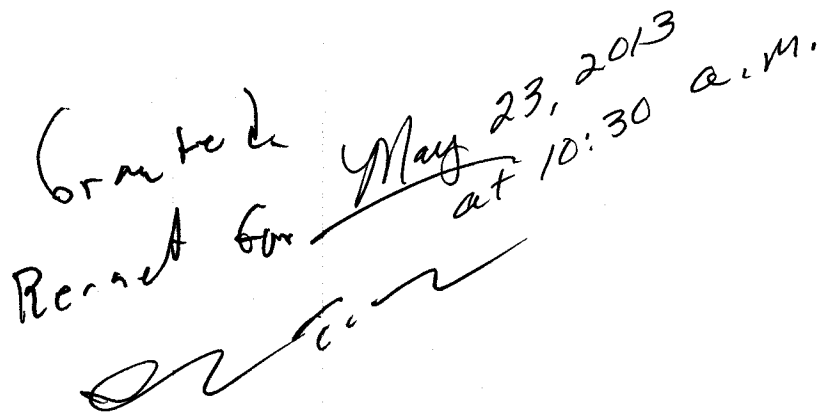 Granted
Reset for May 23, 2013
at 10:30 a.m.